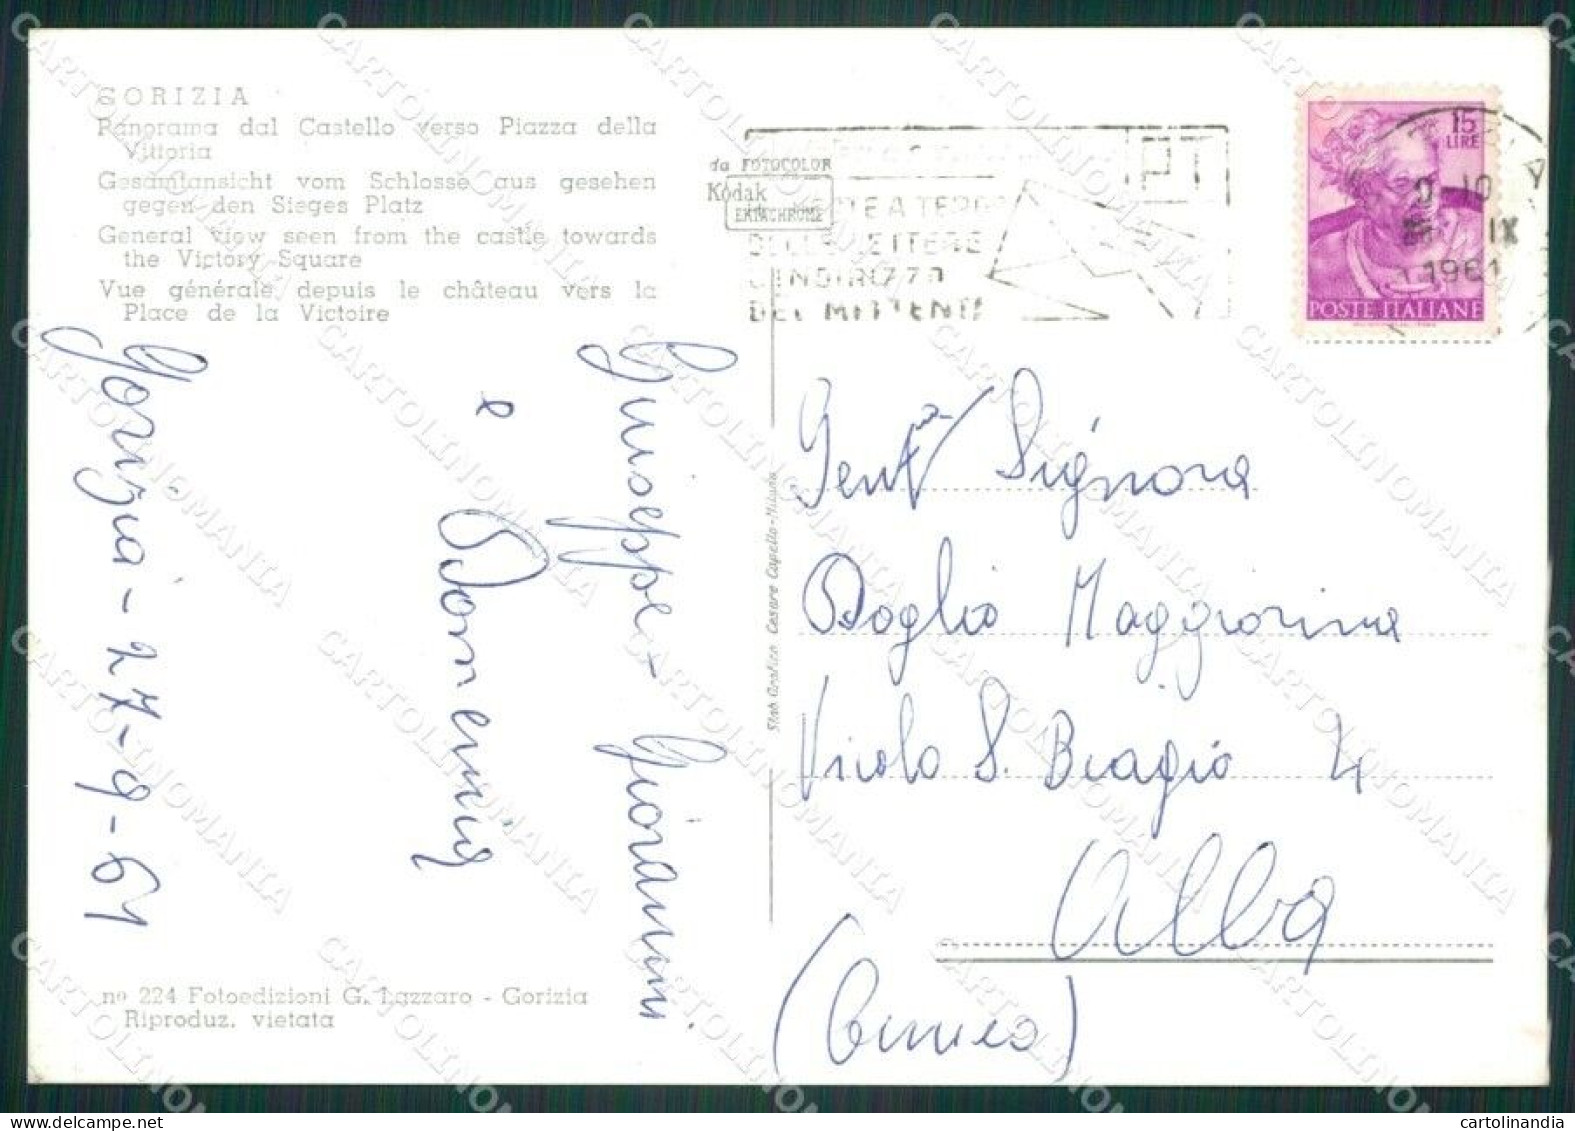 GORIZIA
Panorama dal Castello verso Piazza della
Vittoria
Gesamtansicht vom Schlosse aus gesehen
gegen den Sieges Platz
General view seen from the castle towards
the Victory Square
Vue générale depuis le château vers la
Place de la Victoire
da FOTOCOLOR
Kodak
EKTACHROME
PT
A TERGO
DELLE LETTERE
L'INDIRIZZO
DEL MITTENTE
15
LIRE
IX
1961
POSTE ITALIANE
Giuseppe Giovanni
e
Domenica
Gorizia - 27-9-61
Stab. Grafico Cesare Capello-Milano
Gent.ma Signora
Doglio Maggiorina
Vicolo S. Biagio 4
Alba
(Cuneo)
nº 224 Fotoedizioni G. Lazzaro - Gorizia
Riproduz. vietata
CARTOLINOMANIA
cartolinandia